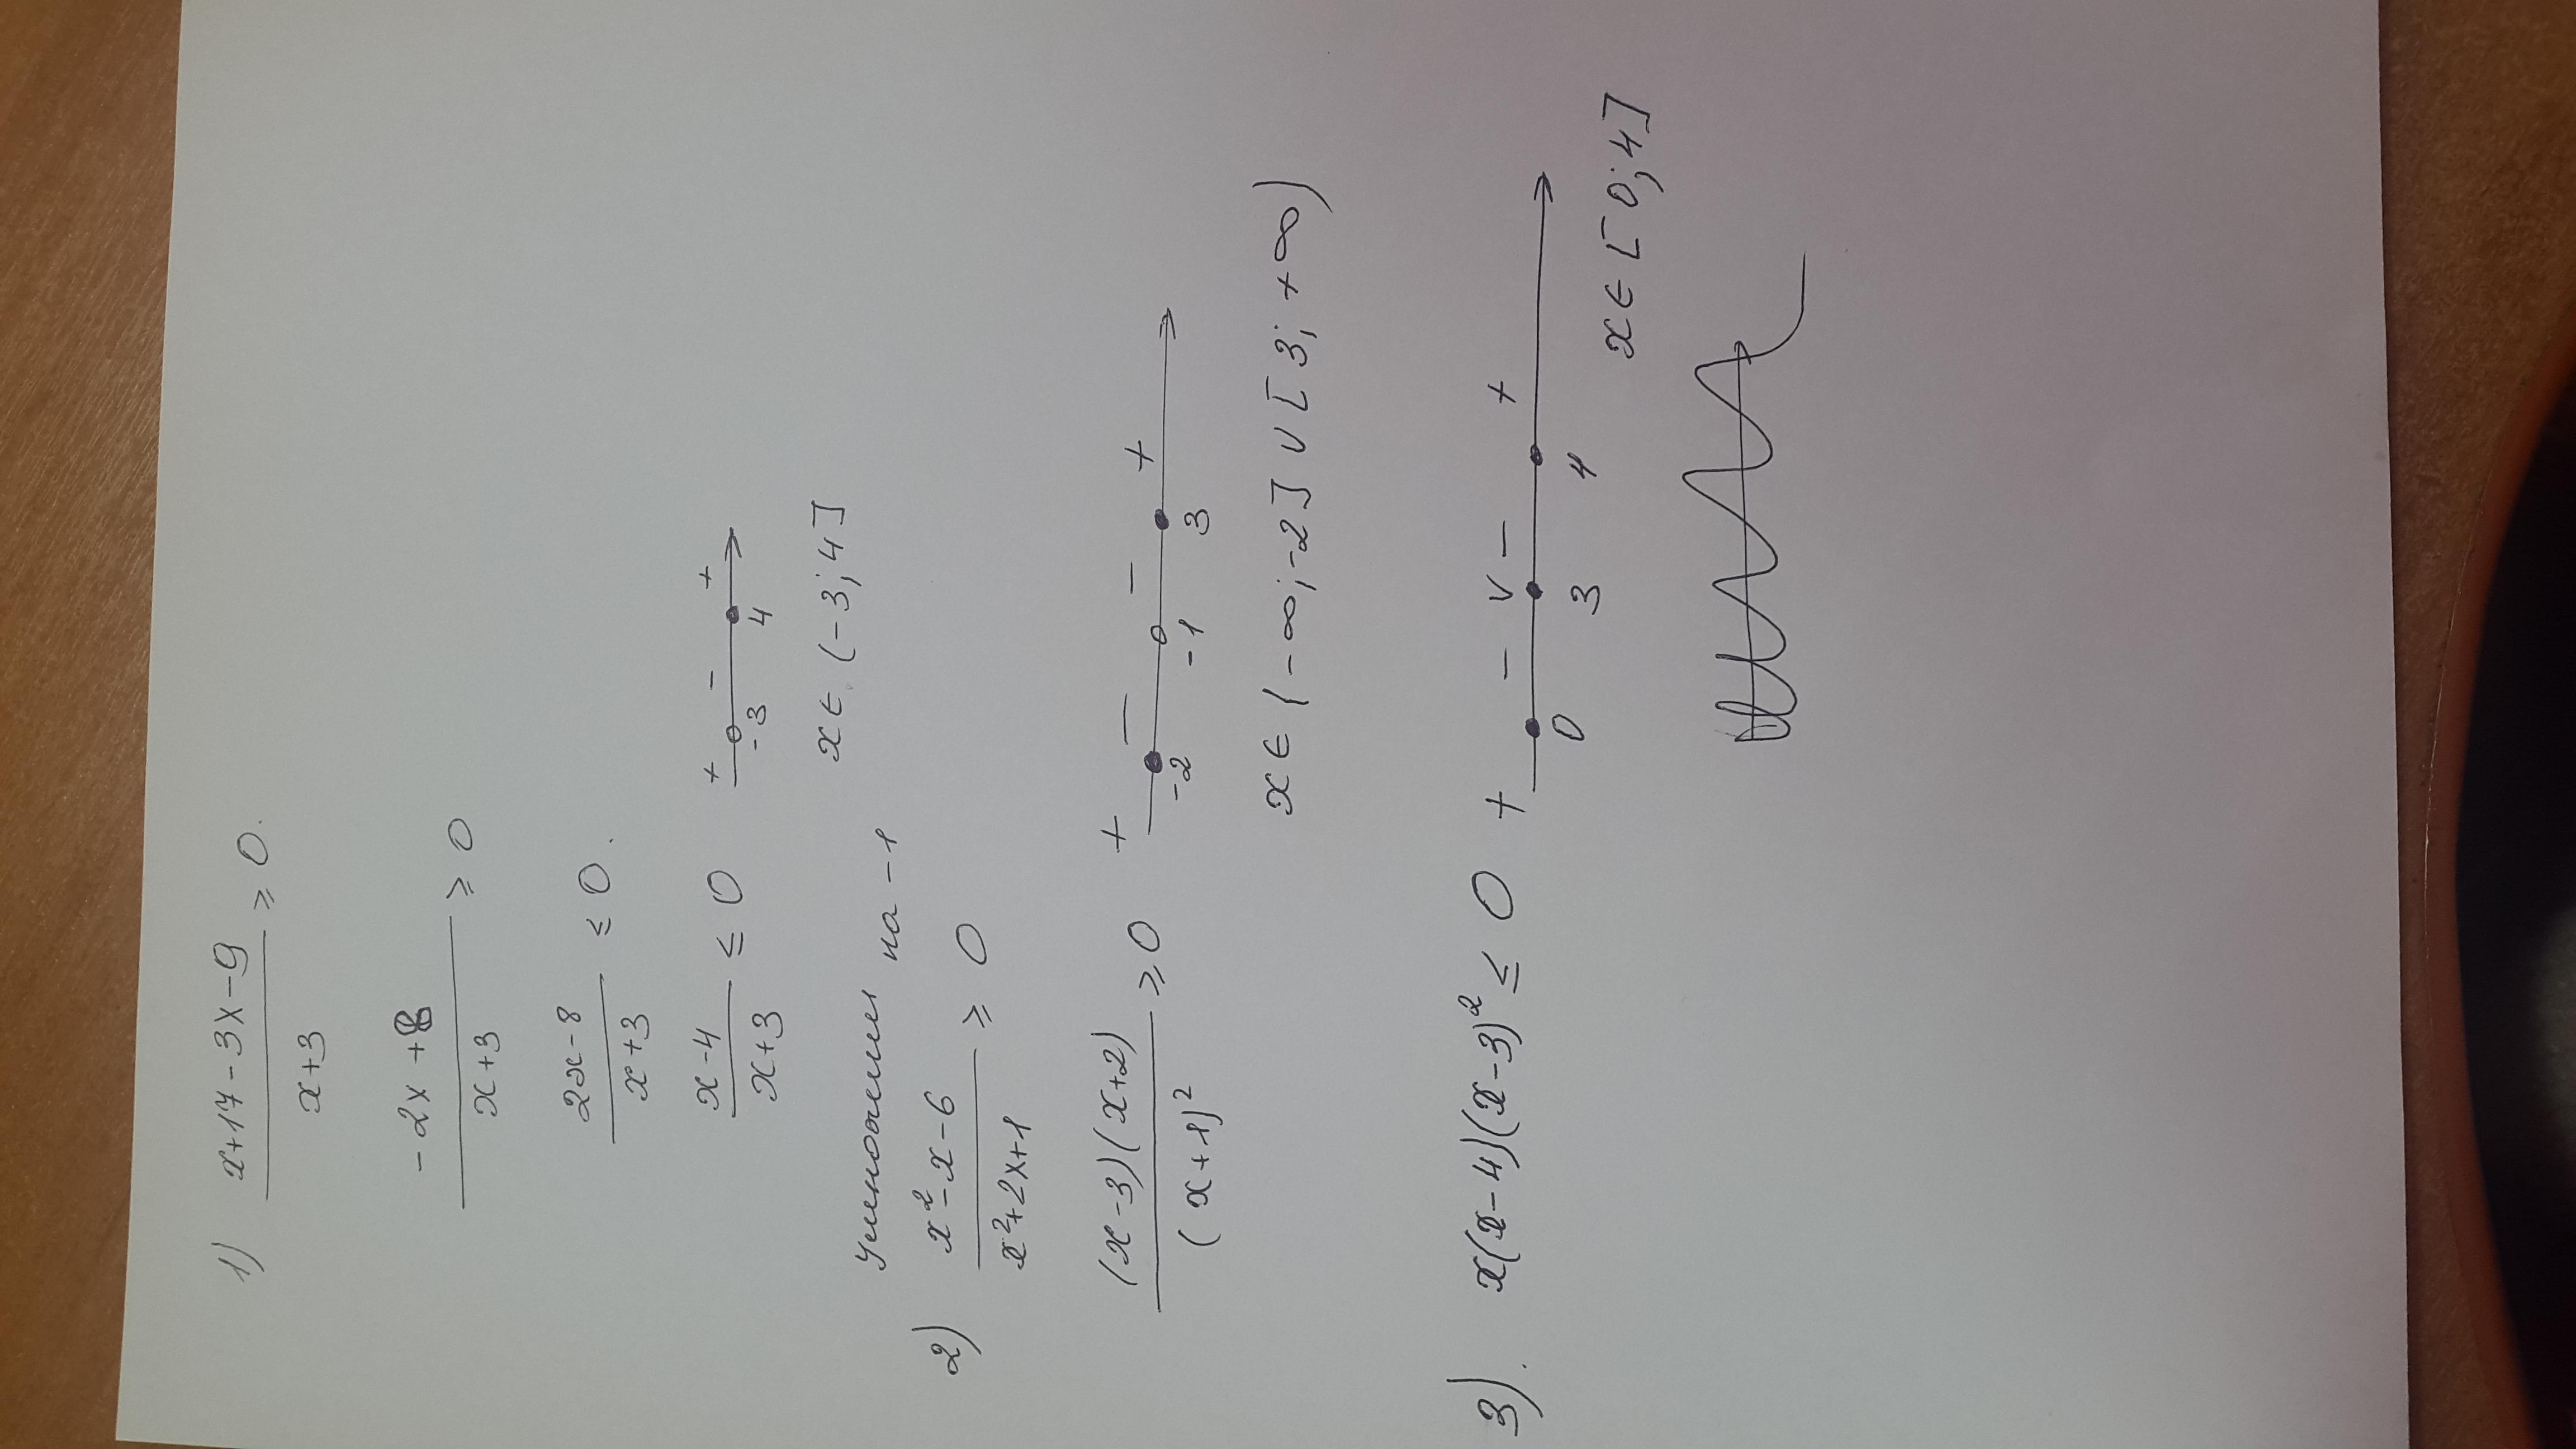 1) x+17-3x-9 / x+3 ≥ 0.
-2x+8 / x+3 ≥ 0
2x-8 / x+3 ≤ 0.
x-4 / x+3 ≤ 0 + - +
-3 4
x ∈ (-3; 4]
Умножили на -1
2) x²-x-6 / x²+2x+1 ≥ 0
(x-3)(x+2) / (x+1)² ≥ 0 + - - +
-2 -1 3
x ∈ (-∞; -2] ∪ [3; +∞)
3). x(x-4)(x-3)² ≤ 0 + - v - +
0 3 4
x ∈ [0; 4]